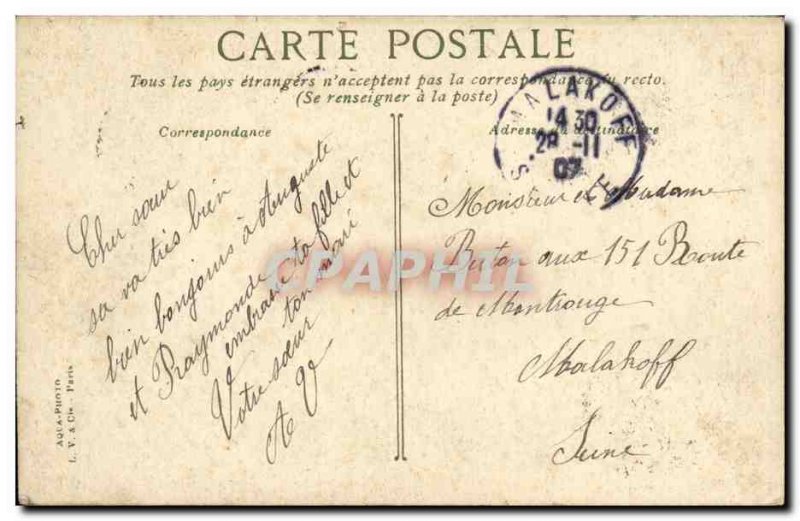 CARTE POSTALE
Tous les pays étrangers n'acceptent pas la correspondance au recto.
(Se renseigner à la poste)
Correspondance
Adresse du destinataire
MALAKOFF
14 30
28 -11
07
Cher sœur
sa va très bien
bien bonjours à Auguste
et Raymonde
embrasse ta fille et
ton mari
Votre sœur
A V
Monsieur et Madame
aux 151 Route
de Montrouge
Malakoff
Seine
AQUA-PHOTO
L. V. & Cie - Paris
CPAPHIL